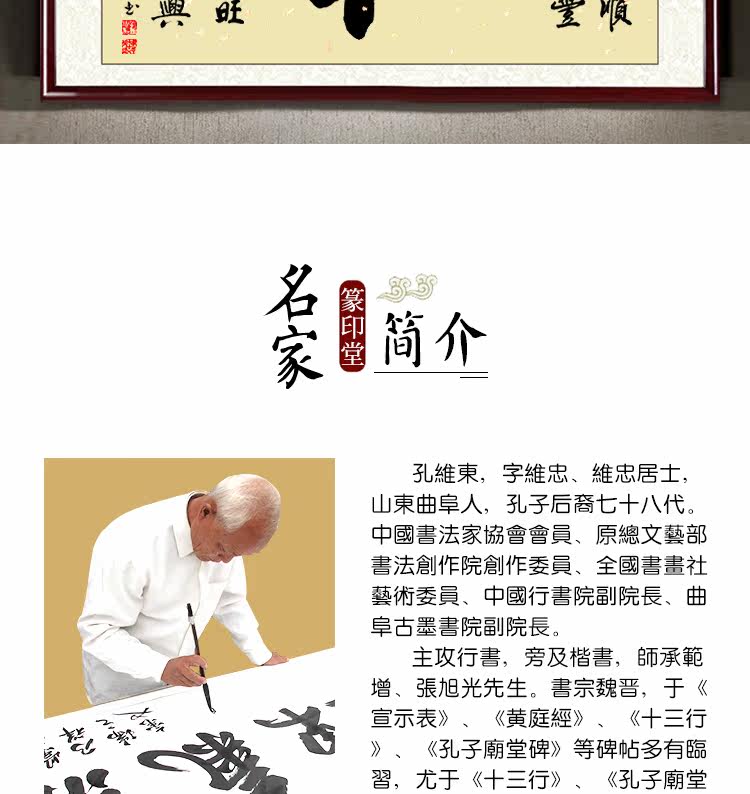 順
豐
旺
興
名家
篆印堂
简介
孔維東，字維忠、維忠居士，
山東曲阜人，孔子后裔七十八代。
中國書法家協會會員、原總文藝部
書法創作院創作委員、全國書畫社
藝術委員、中國行書院副院長、曲
阜古墨書院副院長。
主攻行書，旁及楷書，師承範
增、張旭光先生。書宗魏晋，于《
宣示表》、《黄庭經》、《十三行
》、《孔子廟堂碑》等碑帖多有臨
習，尤于《十三行》、《孔子廟堂